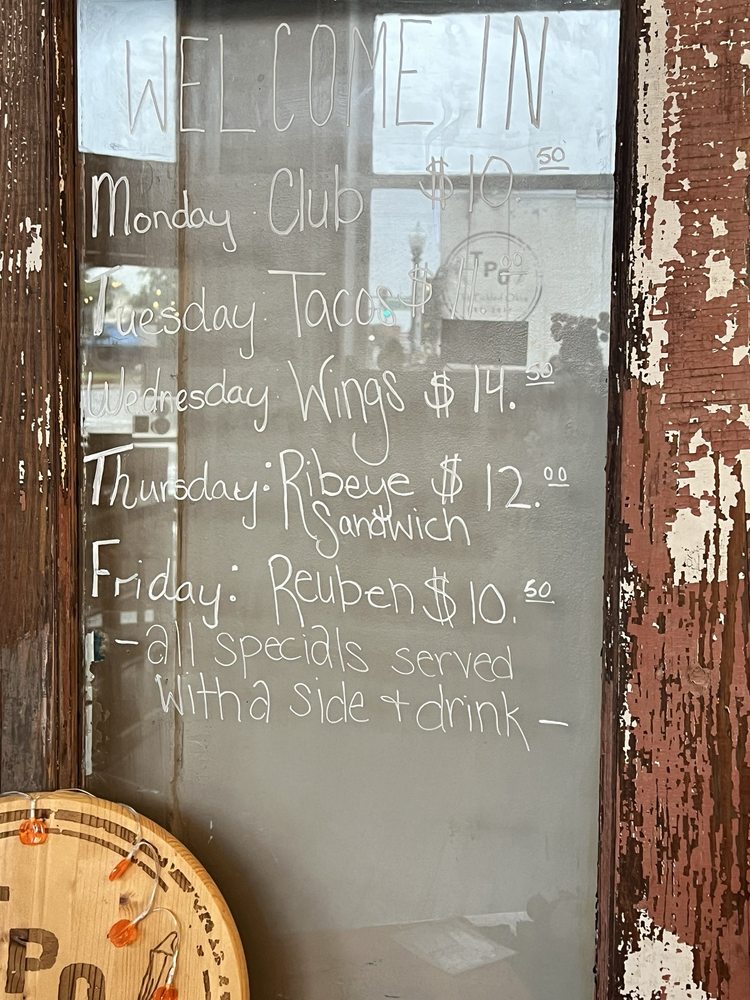 WELCOME IN
Monday Club $10.50
Tuesday: Tacos $11.00
Wednesday: Wings $14.50
Thursday: Ribeye $12.00
Sandwich
Friday: Reuben $10.50
- all specials served
with a side + drink -
TPO
TPO